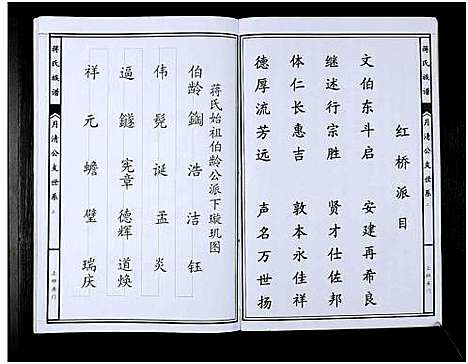 蒋氏族谱
月清公支世系
红桥派目
文伯东斗启 安建再希良
继述行宗胜 贤才仕佐邦
体仁长惠吉 敦本永佳祥
德厚流芳远 声名万世扬
蒋氏始祖伯龄公派下璇玑图
伯龄 浩 洁 钰
伟 髡 诞 孟 炎
逼 鐩 宪章 德辉 道焕
祥 元 蟾 璧 瑞庆
蒋氏族谱
月清公支世系